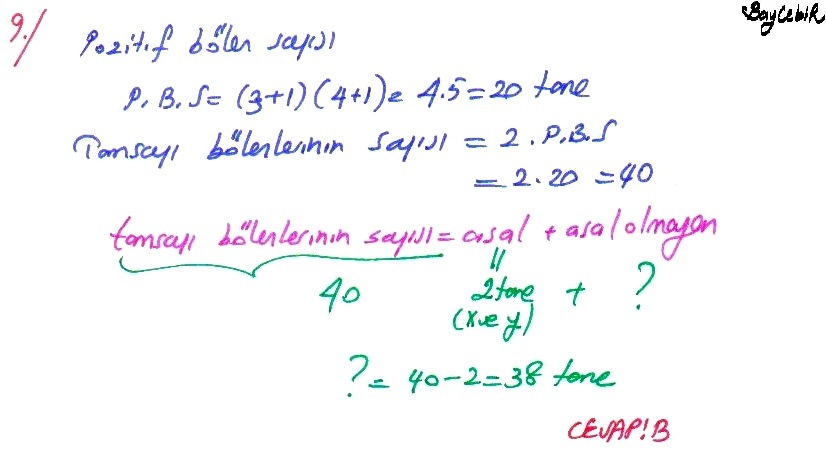 BaycebiR
9./ Pozitif bölen sayısı
P.B.S= (3+1)(4+1)= 4.5=20 tane
Tamsayı bölenlerinin sayısı = 2.P.B.S
= 2.20 =40
tamsayı bölenlerinin sayısı = asal + asal olmayan
40 2 tane + ?
(x ve y)
? = 40-2=38 tane
CEVAP!B